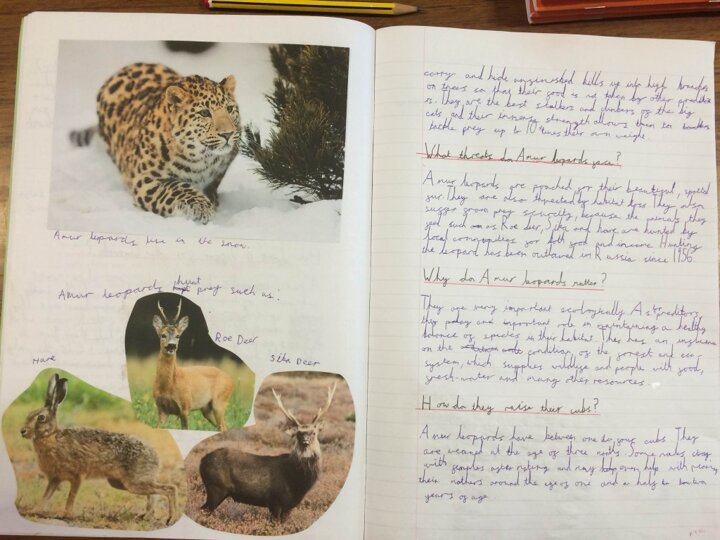 Amur leopards live in the snow.
Amur leopards hunt prey such as:
Roe Deer
Hare
Sika Deer
carry and hide unfinished kills up into high branches
on trees so that their food is not taken by other predators
is. They are the best stalkers and climbers of the big
cats and their immense strength allows them to
tackle prey up to 10 times their own weight.
What threats do Amur leopards face?
Amur leopards are poached for their beautiful, spotted
fur. They are also threatened by habitat loss. They also
suffer from prey scarcity, because the animals they
such as Roe deer, Sika and hare are hunted by
local communities for both food and income. Hunting
the leopard has been outlawed in Russia since 1956.
Why do Amur leopards matter?
They are very important ecologically. As predators,
they play an important role in maintaining a healthy
balance of species in their habitat. This has an influence
on the condition of the forest and eco-
system, which supplies wildlife and people with food,
fresh water and many other resources.
How do they raise their cubs?
Amur leopards have between one to four cubs. They
are weaned at the age of three months. Some males stay
with females after mating and may even help with rearing
their mothers around the age of one and a half to two
years of age.